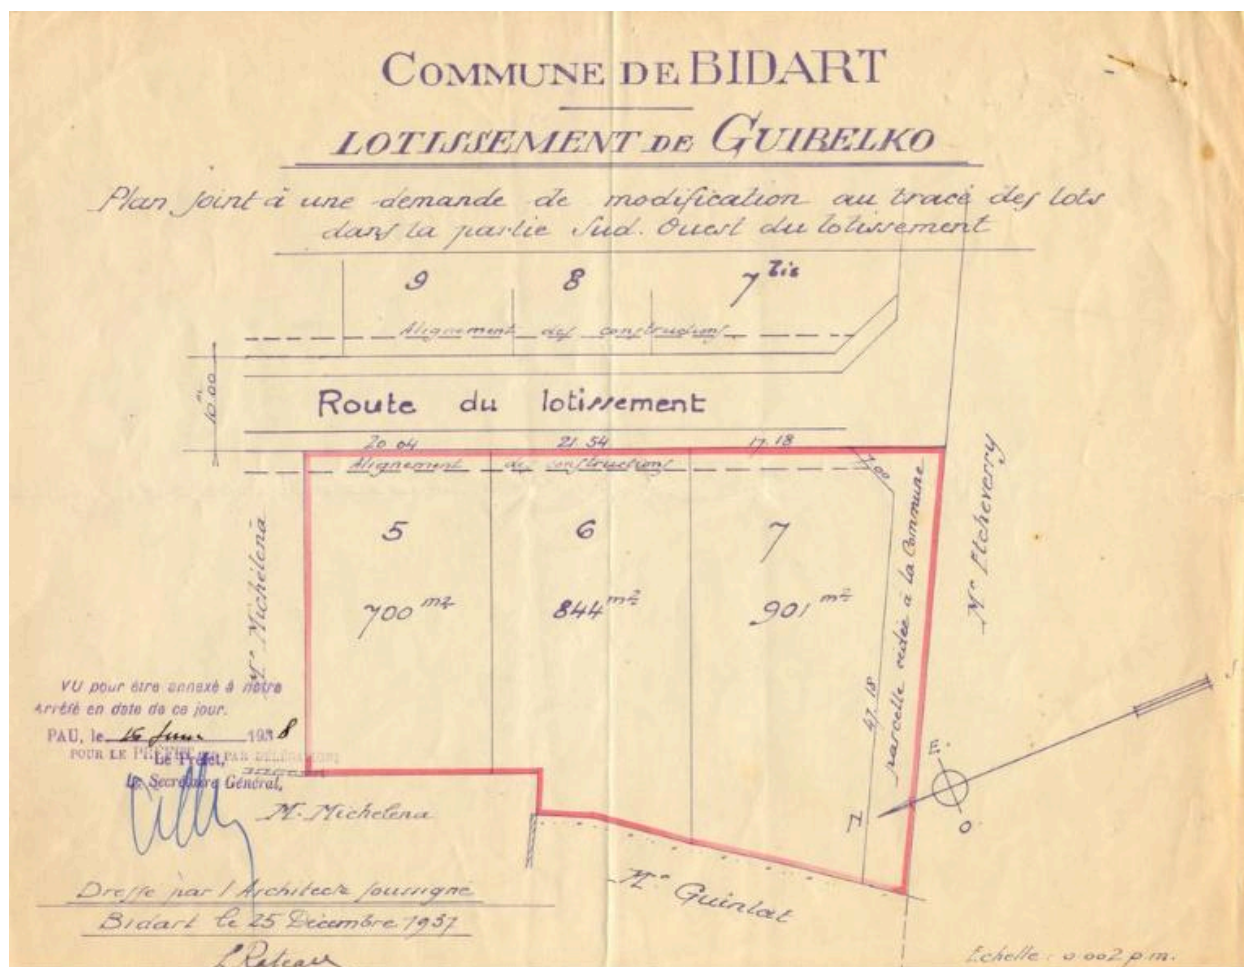 COMMUNE DE BIDART
LOTISSEMENT DE GUIBELKO
Plan joint à une demande de modification au tracé des lots
dans la partie Sud. Ouest du lotissement
9 8 7 bis
Alignement des constructions
10.00 m
Route du lotissement
20.04 21.54 17.18
Alignement des constructions
7.00
5 6 7
700 m2 844 m2 901 m2
Mr Michelena
parcelle cédée à la Commune
Mr Etcheverry
47.18
VU pour être annexé à notre
Arrêté en date de ce jour.
PAU, le 16 Juin 1938
POUR LE PRÉFET PAR DÉLÉGATION
Le Préfet,
Le Secrétaire Général,
M. Michelena
E.
O.
N
S
Mr Guinlat
Dressé par l'Architecte soussigné
Bidart le 25 Décembre 1937
Echelle : 0.002 p.m.